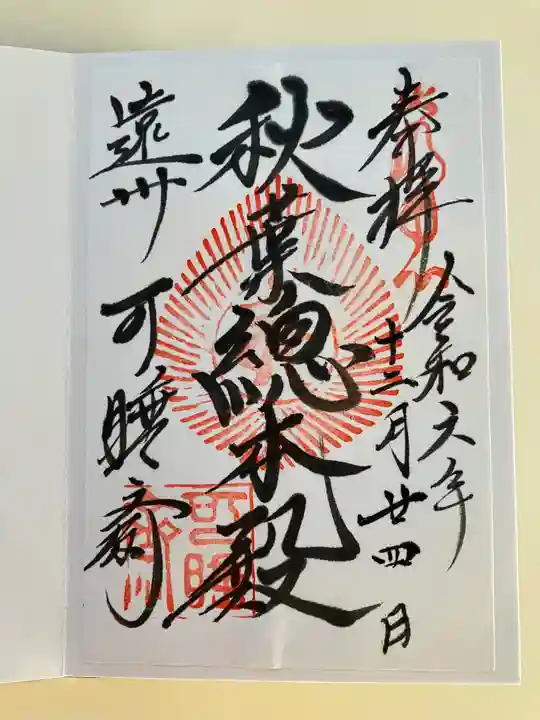 奉拝
令和六年
十二月廿四日
秋葉總本殿
遠州
可睡齋